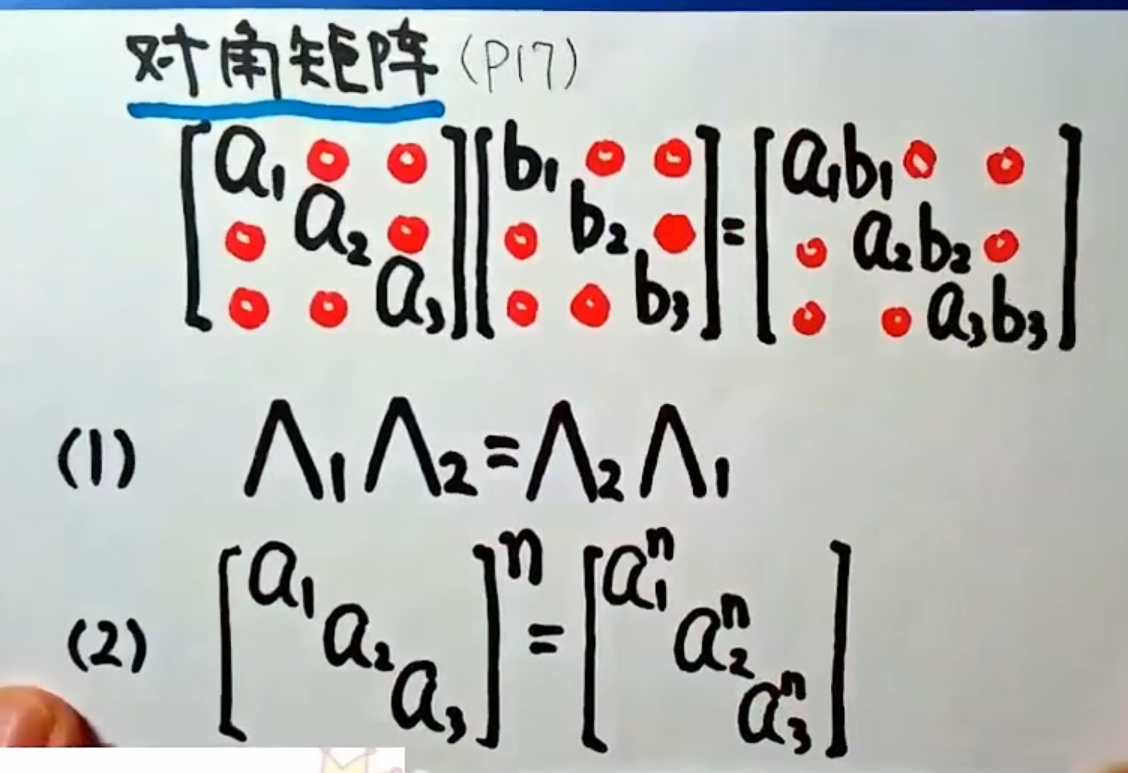 对角矩阵 (P17)
[a₁ 0 0; 0 a₂ 0; 0 0 a₃][b₁ 0 0; 0 b₂ 0; 0 0 b₃] = [a₁b₁ 0 0; 0 a₂b₂ 0; 0 0 a₃b₃]
(1) Λ₁Λ₂=Λ₂Λ₁
(2) [a₁ a₂ a₃]ⁿ = [a₁ⁿ a₂ⁿ a₃ⁿ]